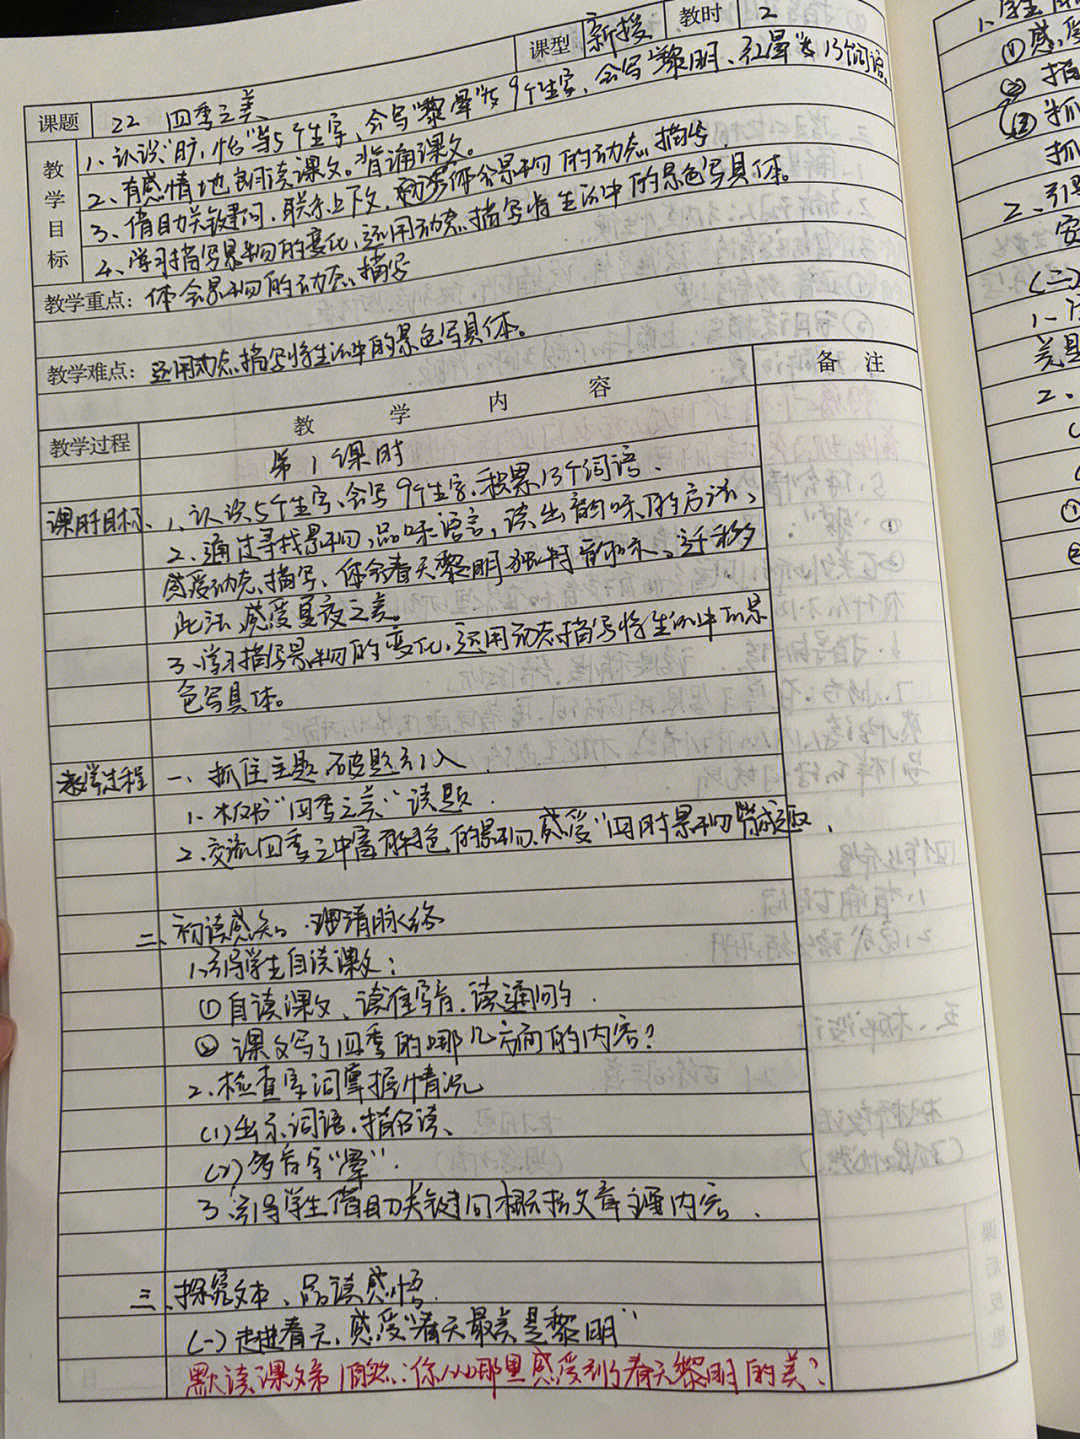 课题 22 四季之美 课型 新授 教时 2
教学目标
1、认识"旷、怡"等5个生字,会写"黎、晕"等9个生字,会写"黎明、红晕"等13个词语。
2、有感情地朗读课文。背诵课文。
3、借助关键词,联系上下文,体会景物的动态描写
4、学习描写景物的变化,运用动态描写将生活中的景色写具体。
教学重点: 体会景物的动态描写
教学难点: 运用动态描写将生活中的景色写具体。
教学过程 教学内容 备注
第1课时
课时目标、1、认识5个生字、会写9个生字,积累13个词语.
2、通过寻找景物,品味语言,读出韵味的方法、
感受动态描写、体会春天黎明独特韵味、迁移
此法,感受夏夜之美。
3、学习描写景物的变化,运用动态描写将生活中的景
色写具体。
教学过程 一、抓住主题,破题引入.
1、板书"四季之美"读题.
2、交流四季之中富有特色的景物,感受"四时景物皆成趣.
二、初读感知,理清脉络
1、引导学生自读课文:
①自读课文、读准字音,读通词句.
②课文写了四季的哪几方面的内容?
2、检查字词掌握情况
(1)出示词语,指名读、
(2)多音字"晕".
3、引导学生借助关键词概括文章主要内容.
三、探究文本、品读感悟.
(一)走进春天,感受"春天最美是黎明"
默读课文第1自然段:你从哪里感受到了春天黎明的美?
1、学生
①感受
②
③抓
抓
2、引导
(二)
1、
美是
2、
①
②